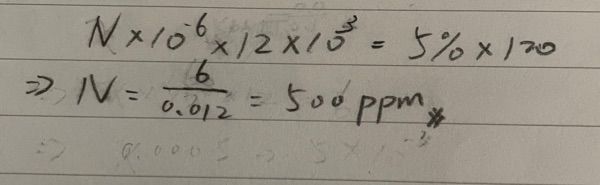 N × 10⁻⁶ × 12 × 10³ = 5% × 120
⇒ N = 6/0.012 = 500 ppm